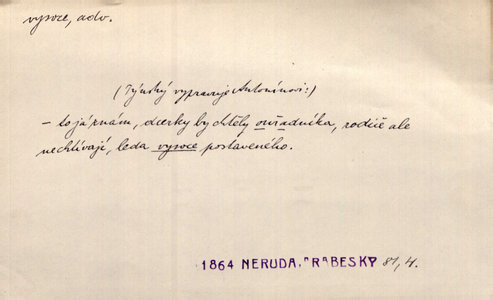 vysoce, adv.
(Týnský vypravuje Antonínovi:)
– to já znám, dcerky by chtěly ouřadníka, rodiče ale
nechtívají, leda vysoce postaveného.
1864 NERUDA, ARABESKY 81, 4.